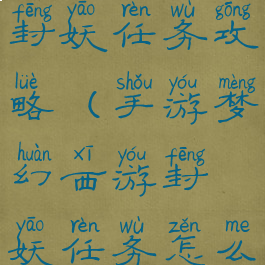 fēng yāo rèn wù gōng
封妖任务攻
lüè shǒu yóu mèng
略（手游梦
huàn xī yóu fēng
幻西游封
yāo rèn wù zěn me
妖任务怎么